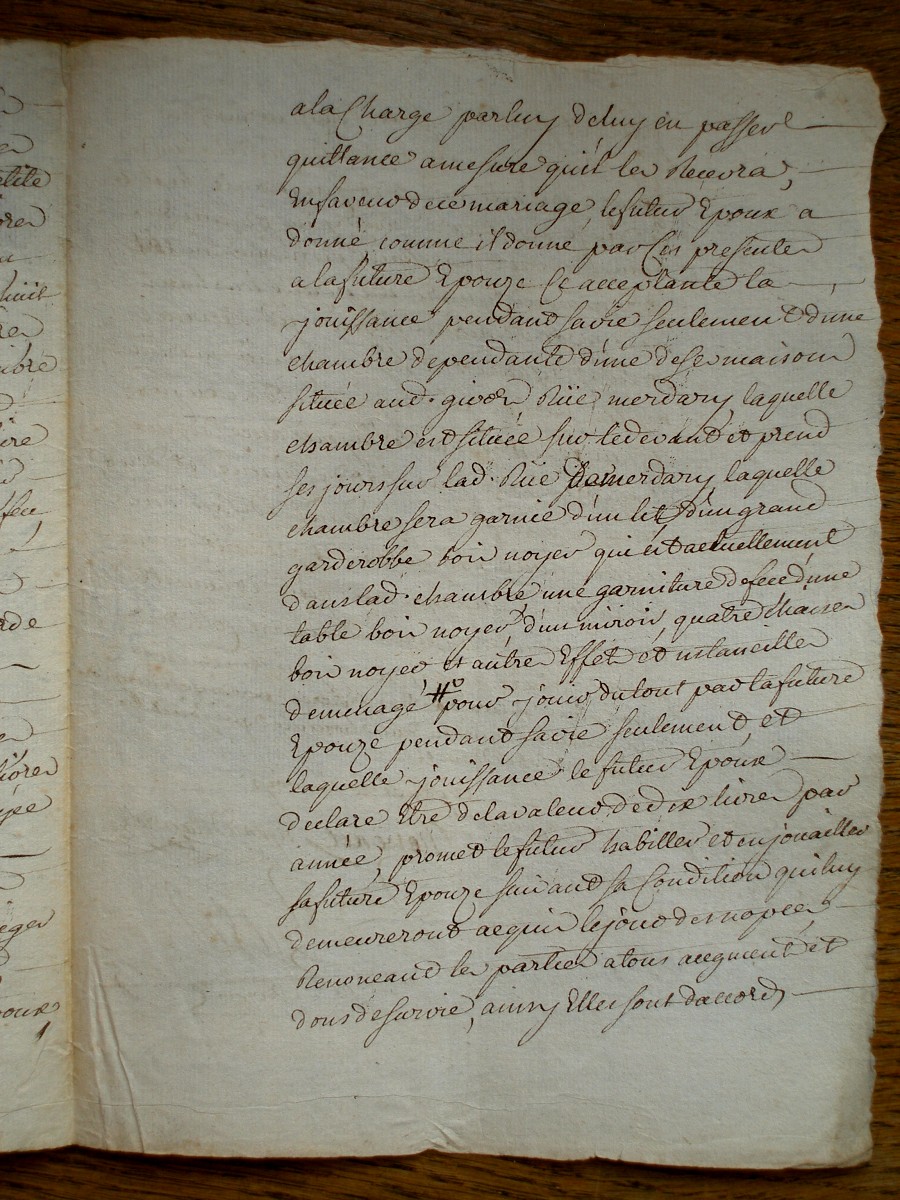 ala Charge parluy deluy en passer
quittance amesure qu'il les Recevra,
Enfaveur dece mariage, lefutur Epoux a
donné comme il donne par Ces presentes
alafuture Epouze Ce acceptante la
jouissance pendant savie seulement d'une
chambre dependante d'une deses maisons
située aud. givors Rüe merdary, laquelle
chambre est située sur ledevant et prend
ses jours sur lad. Rüe merdary laquelle
chambre sera garnie d'un lit, d'un grand
garderobbe bois noyer qui est actuellement
dans lad. chambre une garniture defeu d'une
table bois noyer, d'un miroir, quatre chaises
bois noyer et autres Effets et ustancilles
demenage # pour jouir dutout par lafuture
Epouze pendant savie seulement, et
laquelle jouissance lefutur Epoux
declare Etre delavaleur dedix livres par
année, promet lefutur habiller et enjouailler
safuture Epouze suivant sa Condition quiluy
demeureront acquis lejour des nopces,
Renonceant les parties atous augment et
dons desurvie, ainsy Elles sont daccord,
etite
huit
mbre
ade